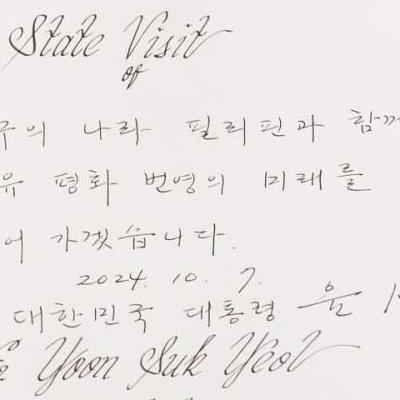 State Visit
of
구의 나라 필리핀과 함께
유 평화 번영의 미래를
어 가겠습니다.
2024. 10. 7.
대한민국 대통령 윤
Yoon Suk Yeol